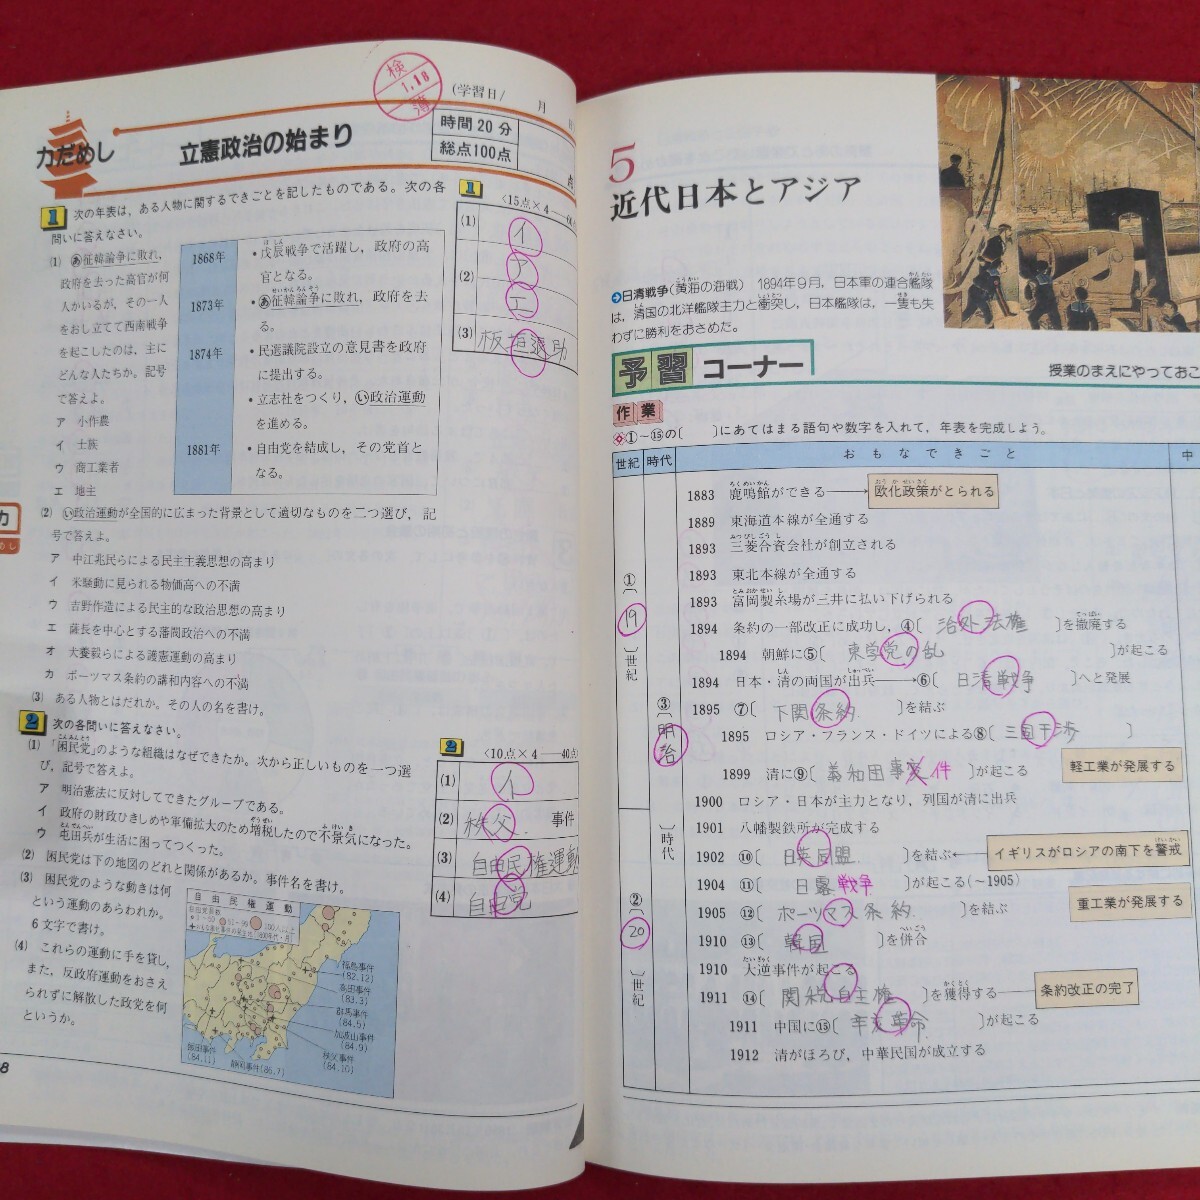 検
1.18
簿
(学習日/ 月
力だめし
立憲政治の始まり
時間20分
総点100点
1 次の年表は，ある人物に関するできごとを記したものである。次の各
問いに答えなさい。
(1) あ征韓論争に敗れ，
政府を去った高官が何
人かいるが，その一人
をおし立てて西南戦争
を起こしたのは，主に
どんな人たちか。記号
で答えよ。
ア 小作農
イ 士族
ウ 商工業者
エ 地主
1868年
・戊辰戦争で活躍し，政府の高
官となる。
1873年
・あ征韓論争に敗れ，政府を去
る。
1874年
・民選議院設立の意見書を政府
に提出する。
・立志社をつくり，い政治運動
を進める。
1881年
・自由党を結成し，その党首と
なる。
(2) い政治運動が全国的に広まった背景として適切なものを二つ選び，記
号で答えよ。
ア 中江兆民らによる民主主義思想の高まり
イ 米騒動に見られる物価高への不満
ウ 吉野作造による民主的な政治思想の高まり
エ 薩長を中心とする藩閥政治への不満
オ 犬養毅らによる護憲運動の高まり
カ ポーツマス条約の講和内容への不満
(3) ある人物とはだれか。その人の名を書け。
1
〈15点×4
(1) イ
(2) ア
エ
(3) 板垣退助
2 次の各問いに答えなさい。
(1) 「困民党」のような組織はなぜできたか。次から正しいものを一つ選
び，記号で答えよ。
ア 明治憲法に反対してできたグループである。
イ 政府の財政ひきしめや軍備拡大のため増税したので不景気になった。
ウ 屯田兵が生活に困ってつくった。
(2) 困民党は下の地図のどれと関係があるか。事件名を書け。
(3) 困民党のような動きは何
という運動のあらわれか。
6文字で書け。
(4) これらの運動に手を貸し，
また，反政府運動をおさえ
られずに解散した政党を何
というか。
2
〈10点×4―40点
(1) イ
(2) 秩父 事件
(3) 自由民権運動
(4) 自由党
自由民権運動
福島事件
(82.12)
高田事件
(83.3)
群馬事件
(84.5)
加波山事件
(84.9)
秩父事件
(84.10)
飯田事件
(84.11)
静岡事件(86.7)
8
5
近代日本とアジア
日清戦争(黄海の海戦) 1894年9月，日本軍の連合艦隊
は，清国の北洋艦隊主力と衝突し，日本艦隊は，一隻も失
わずに勝利をおさめた。
予習コーナー
授業のまえにやっておこ
作業
①～⑮の〔 〕にあてはまる語句や数字を入れて，年表を完成しよう。
世紀 時代 おもなできごと 中
①〔19〕世紀
②〔20〕世紀
③〔明治〕時代
1883 鹿鳴館ができる→欧化政策がとられる
1889 東海道本線が全通する
1893 三菱合資会社が創立される
1893 東北本線が全通する
1893 富岡製糸場が三井に払い下げられる
1894 条約の一部改正に成功し，④〔治外法権〕を撤廃する
1894 朝鮮に⑤〔東学党の乱〕が起こる
1894 日本・清の両国が出兵→⑥〔日清戦争〕へと発展
1895 ⑦〔下関条約〕を結ぶ
1895 ロシア・フランス・ドイツによる⑧〔三国干渉〕
1899 清に⑨〔義和団事変件〕が起こる
軽工業が発展する
1900 ロシア・日本が主力となり，列国が清に出兵
1901 八幡製鉄所が完成する
1902 ⑩〔日英同盟〕を結ぶ←イギリスがロシアの南下を警戒
1904 ⑪〔日露戦争〕が起こる(～1905)
1905 ⑫〔ポーツマス条約〕を結ぶ
重工業が発展する
1910 ⑬〔韓国〕を併合
1910 大逆事件が起こる
1911 ⑭〔関税自主権〕を獲得する―条約改正の完了
1911 中国に⑮〔辛亥革命〕が起こる
1912 清がほろび，中華民国が成立する